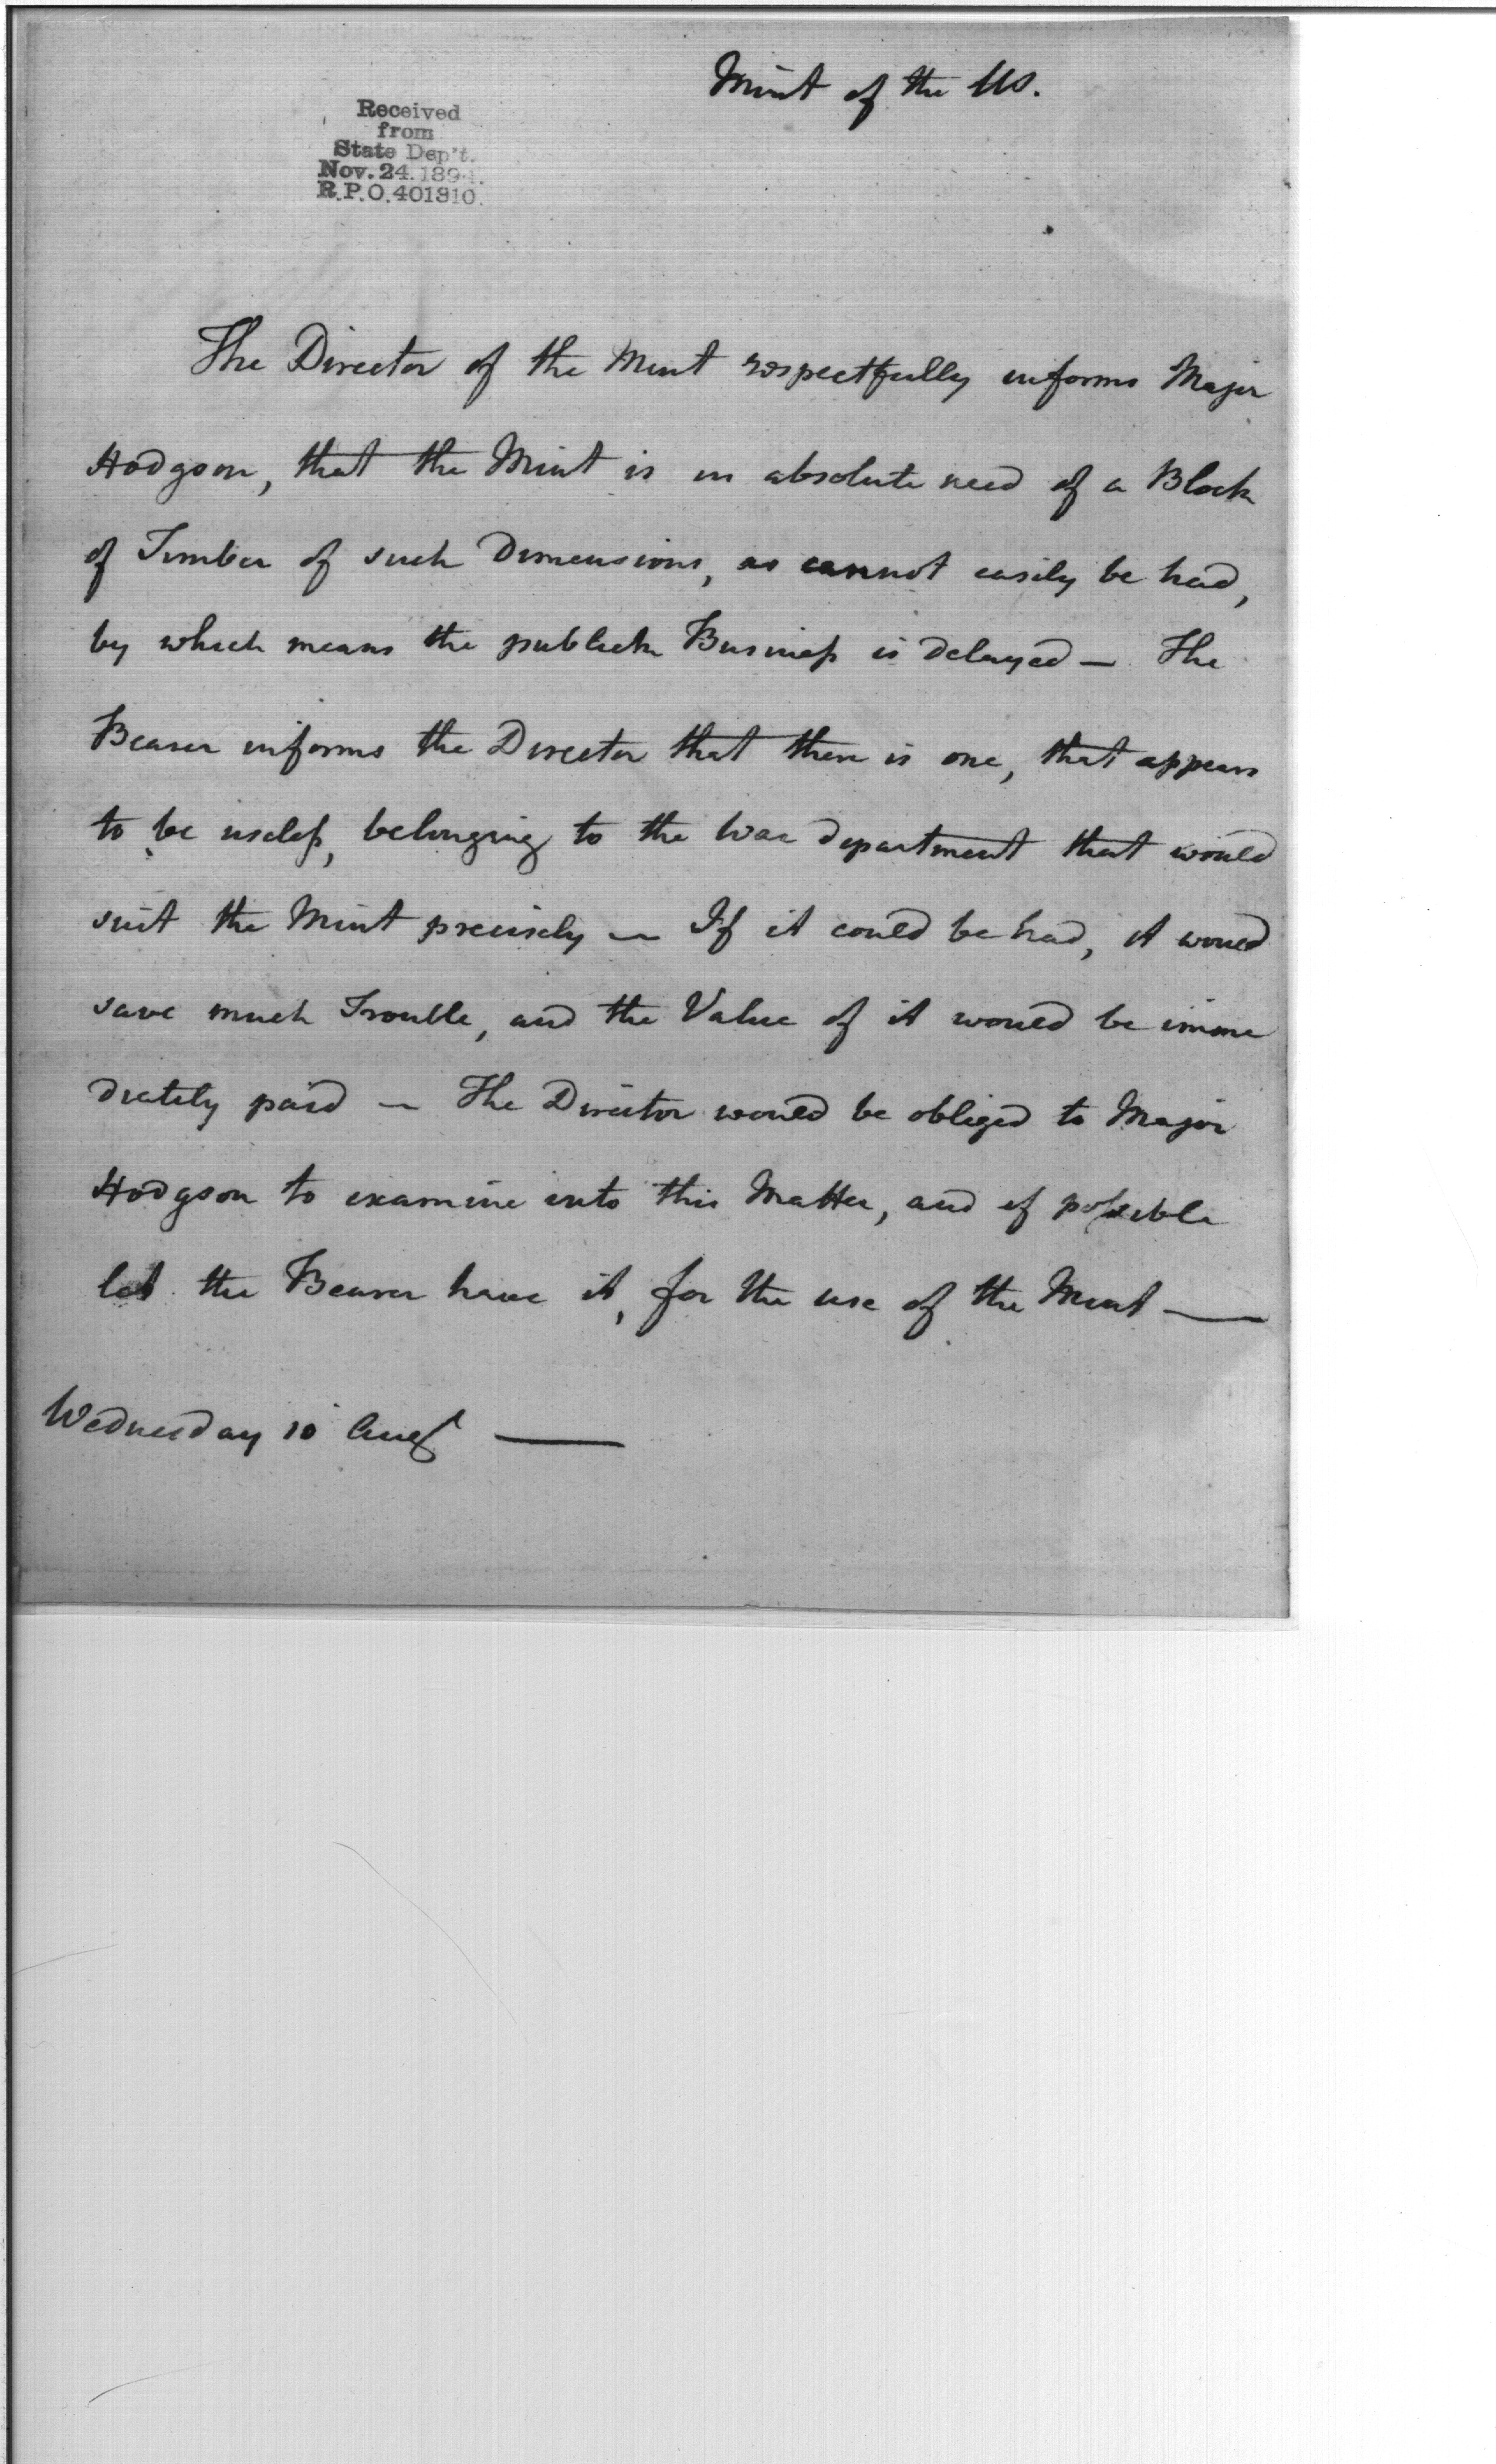 Mint of the US.
Received
from
State Dep't.
Nov. 24. 1894.
R.P.O. 401310.
The Director of the Mint respectfully informs Major
Hodgson, that the Mint is in absolute need of a Block
of Timber of such Dimensions, as cannot easily be had,
by which means the publick Business is delayed — The
Bearer informs the Director that there is one, that appears
to be useless, belonging to the War department that would
suit the Mint precisely — If it could be had, it would
save much Trouble, and the Value of it would be imme
diately paid — The Director would be obliged to Major
Hodgson to examine into this Matter, and if possible
let the Bearer have it, for the use of the Mint —
Wednesday 10 Augt —